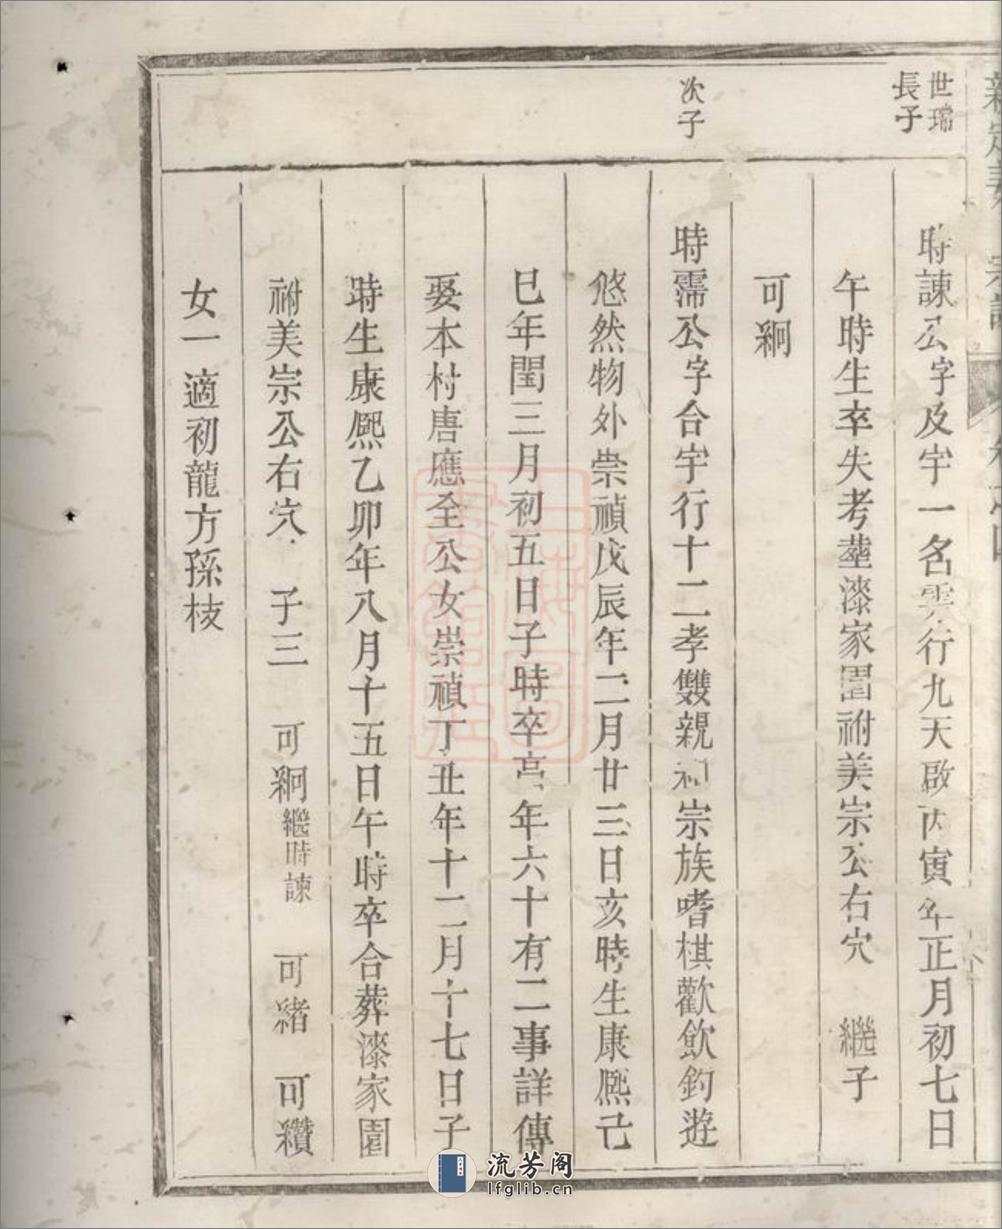 世瑞
長子
時諫公字及宇一名雲行九天啟丙寅年正月初七日
午時生卒失考塟漆家園祔美宗公右穴 繼子
可絅
次子
時霈公字合宇行十二孝雙親和宗族嗜棋歡飲釣遊
悠然物外崇禎戊辰年二月廿三日亥時生康熈己
巳年閏三月初五日子時卒享年六十有二事詳傳
娶本村唐應全公女崇禎丁丑年十二月十七日子
時生康熈乙卯年八月十五日午時卒合葬漆家園
祔美宗公右穴 子三 可絅繼時諫 可緒 可纘
女一適初龍方孫枝
流芳阁
lfglib.cn